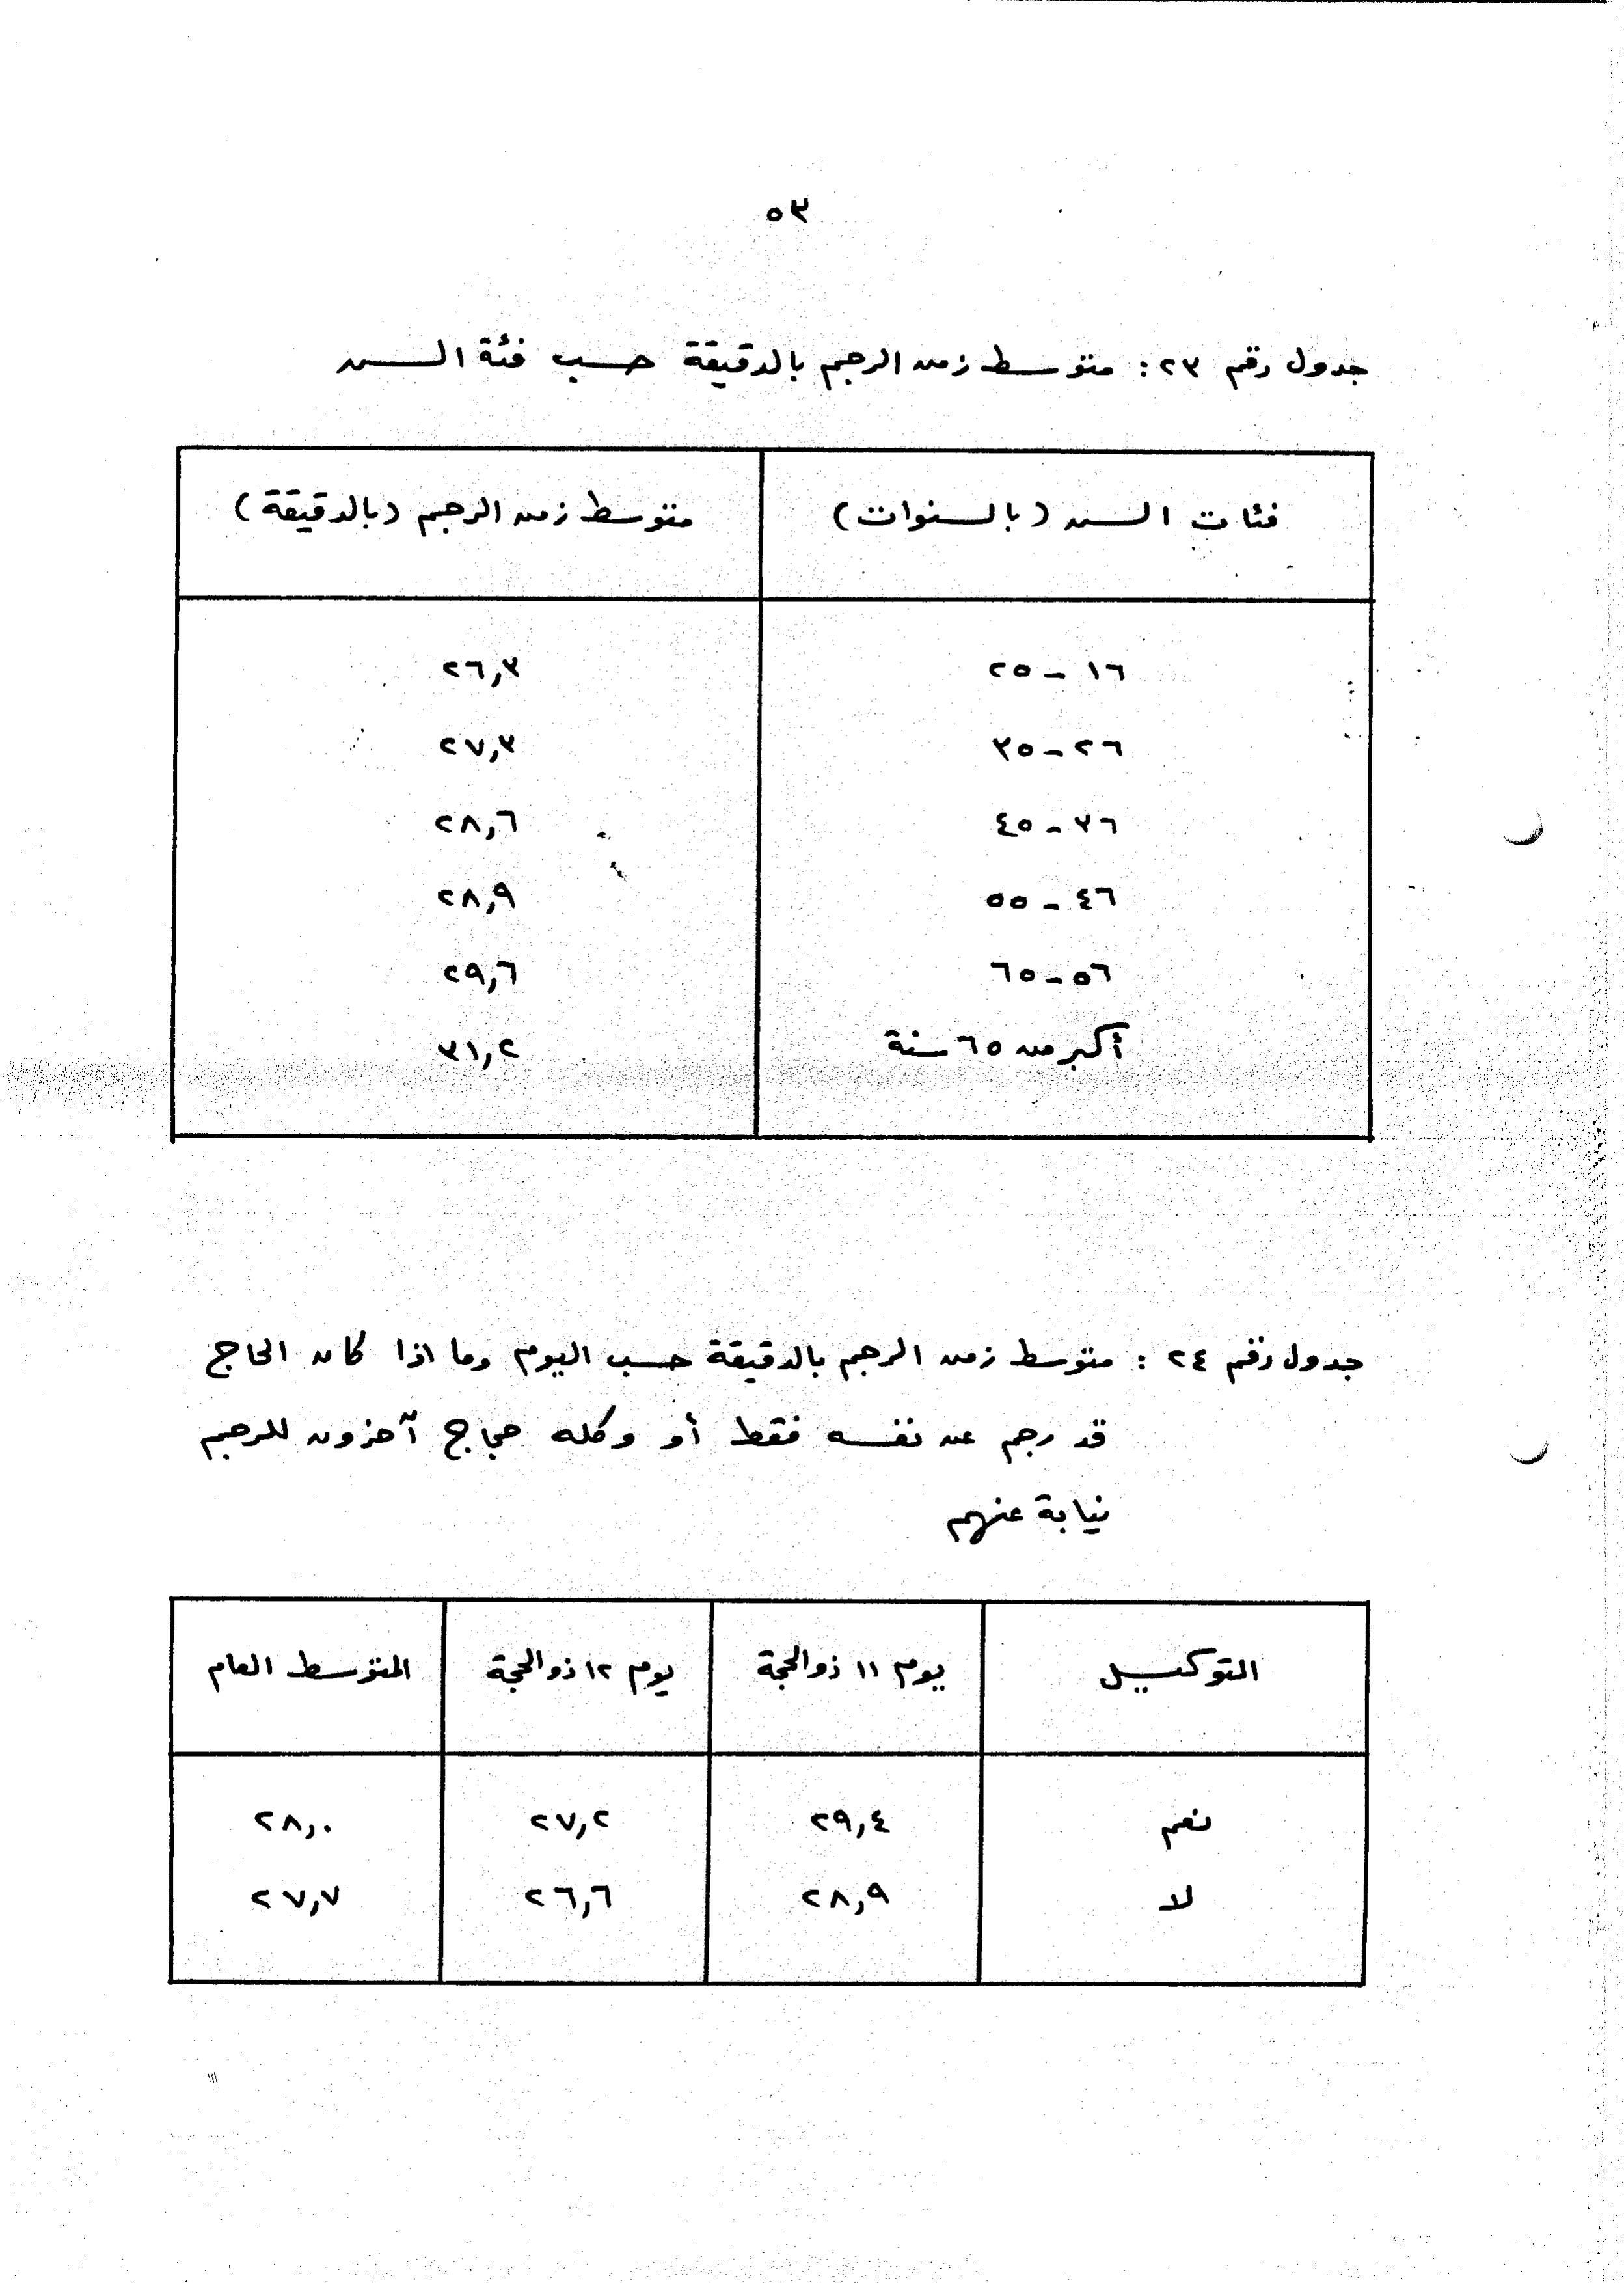 ٥٣
جدول رقم ٢٣ : متوسط زمن الرجم بالدقيقة حسب فئة السن
فئات السن (بالسنوات) متوسط زمن الرجم (بالدقيقة)
١٦ - ٢٥ ٢٦,٣
٢٦ - ٣٥ ٢٧,٣
٣٦ - ٤٥ ٢٨,٦
٤٦ - ٥٥ ٢٨,٩
٥٦ - ٦٥ ٢٩,٦
أكبر من ٦٥ سنة ٣١,٢
جدول رقم ٢٤ : متوسط زمن الرجم بالدقيقة حسب اليوم وما اذا كان الحاج
قد رجم عن نفسه فقط أو وكله حجاج آخرون للرجم
نيابة عنهم
التوكيل يوم ١١ ذو الحجة يوم ١٢ ذو الحجة المتوسط العام
نعم ٢٩,٤ ٢٧,٢ ٢٨,٠
لا ٢٨,٩ ٢٦,٦ ٢٧,٧